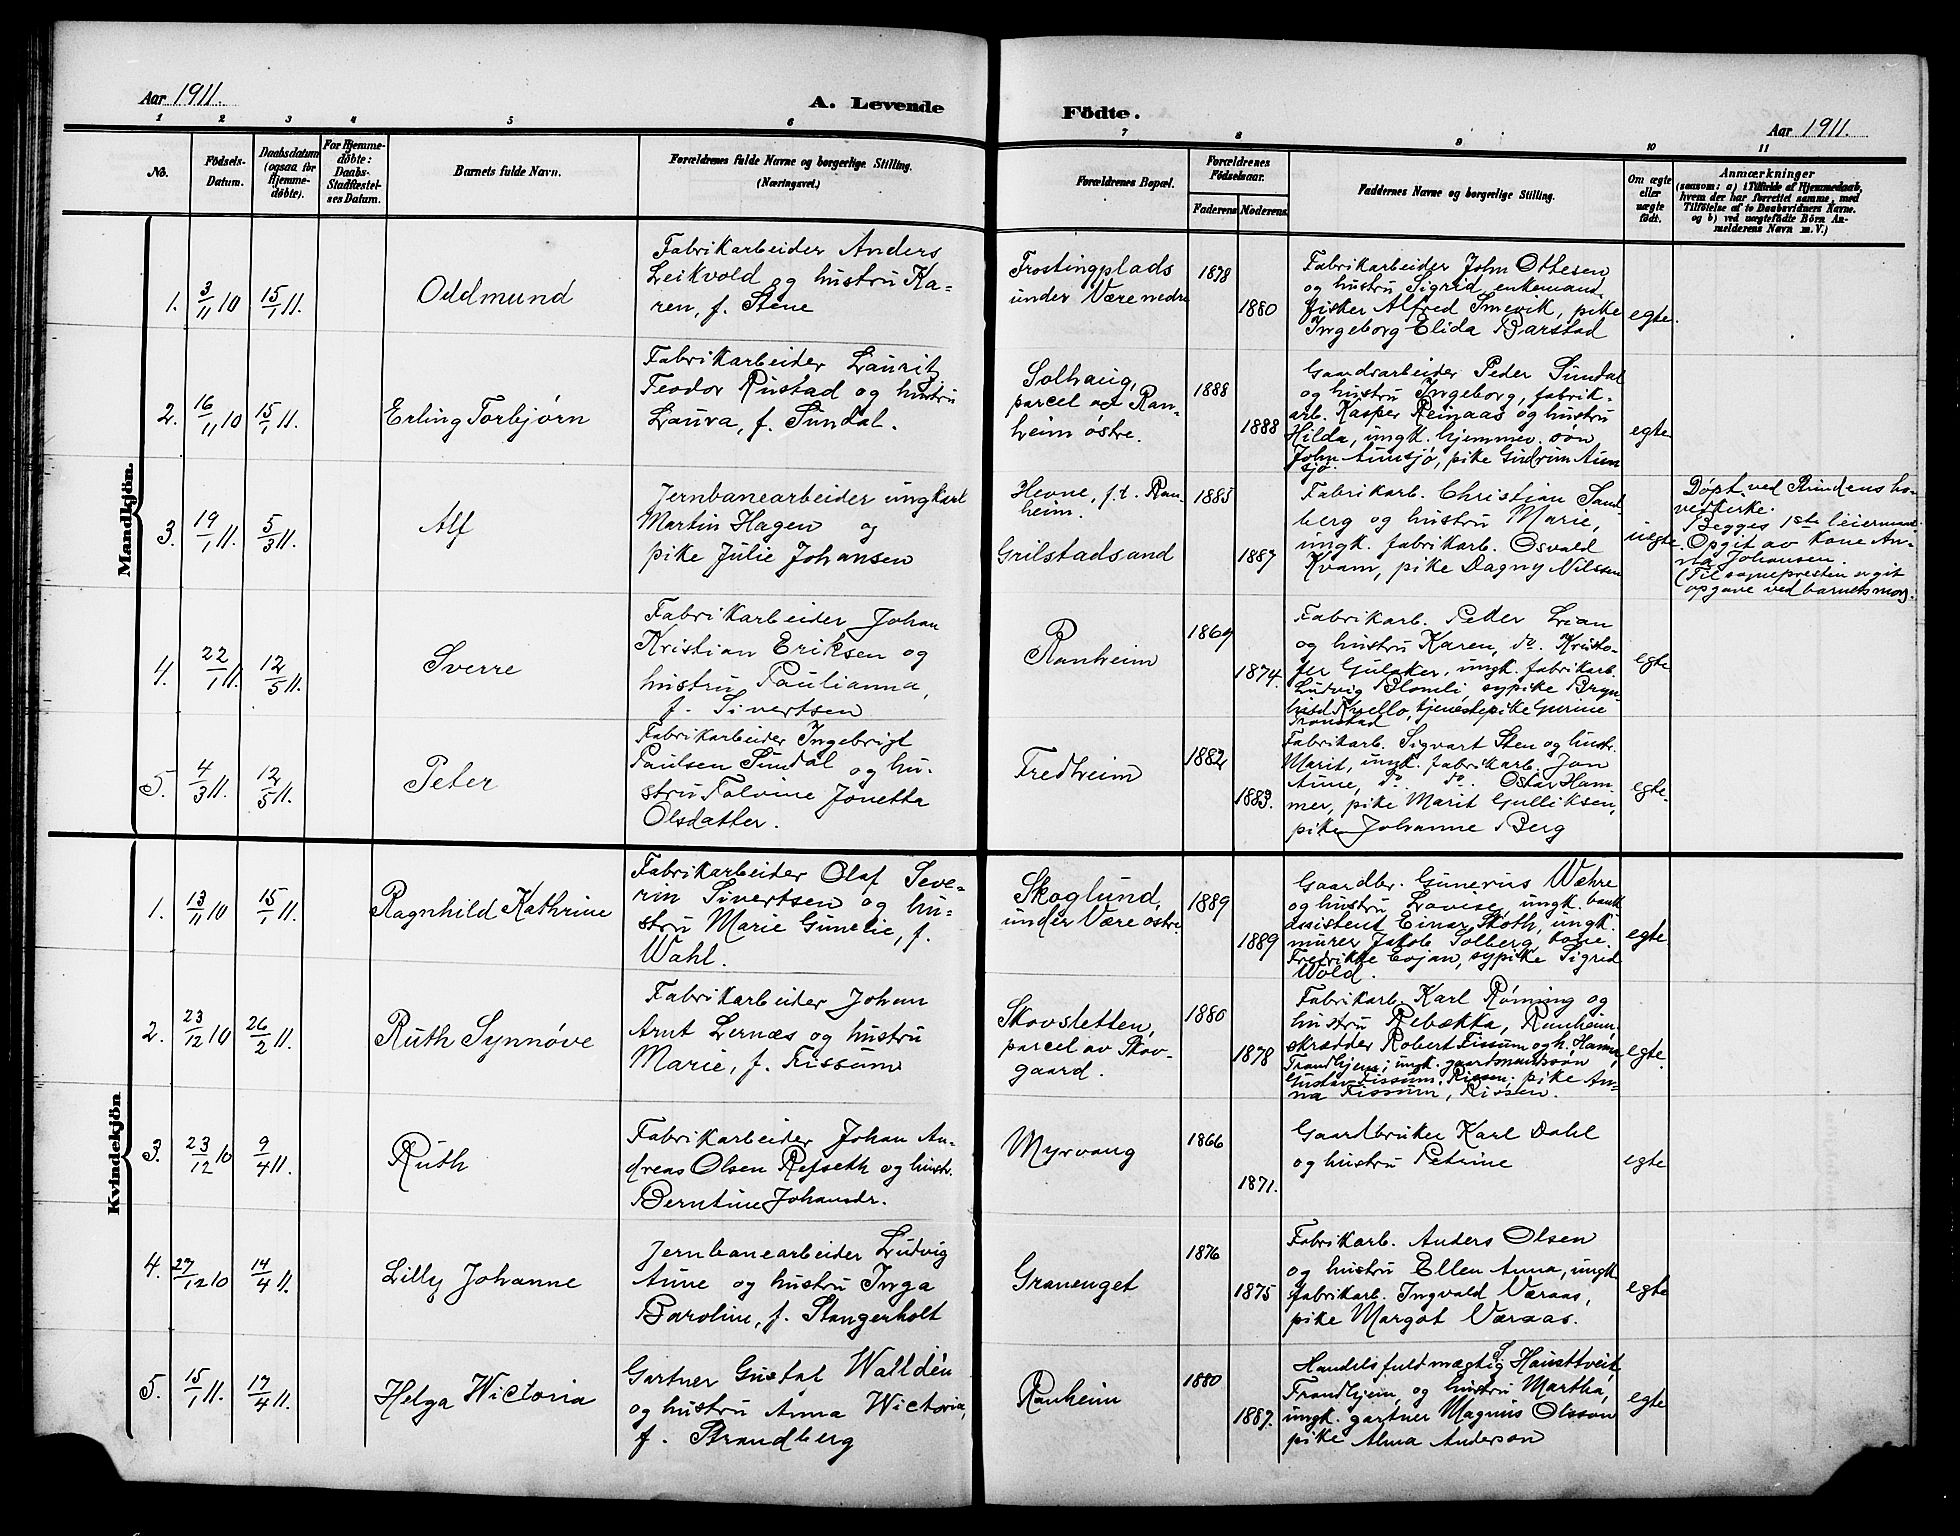 Aar 1911.
A. Levende Födte.
Aar 1911.
1 2 3 4 5 6 7 8 9 10 11
No.
Födsels-
Datum.
Daabsdatum
(ogsaa for
Hjemme-
døbte).
For Hjemme-
døbte:
Daabs-
Stadfæstel-
ses Datum.
Barnets fulde Navn.
Forældrenes fulde Navne og borgerlige Stilling.
(Næringsvei.)
Forældrenes Bopæl.
Forældrenes
Födselsaar.
Faderens Moderens
Faddernes Navne og borgerlige Stilling.
Om ægte
eller
uægte
født.
Anmærkninger
(saasom: a) i Tilfælde af Hjemmedaab,
hvem der har forrettet samme, med
Tilföielse af to Daabsvidners Navne.
og b) ved uægtefödte Börn An-
melderens Navn m. V.)
Mandkjön.
1. 3/11 10 15/1 11.
Oddmund
Fabrikarbeider Anders
Leikvold og hustru Ka-
ren, f. Stene
Trostingplads
under Være nedre
1878
1880
Fabrikarbeider John Ottesen
og hustru Sigrid, enkemand
fisker Alfred Smevik, pike
Ingeborg Elida Barstad
egte.
2. 16/11 10 15/1 11.
Erling Torbjørn
Fabrikarbeider Laurits
Teodor Rustad og hustru
Laura, f. Sundal.
Solhaug,
parcel av Ran-
heim østre.
1888
1888
Gaardsarbeider Peder Sundal
og hustru Ingeborg, fabrik-
arb. Kasper Reinaas og hustru
Hilda, ungk. hjemmev. søn
John Aunsjø, pike Gudrun Aun
sjø.
egte
3. 19/1 11. 5/3 11.
Alf
Jernbanearbeider ungkarl
Martin Hagen og
pike Julie Johansen
Hevne, f.t. Ran-
heim.
Grilstadsand
1885
1887
Fabrikarb. Christian Sand-
berg og hustru Marie,
ungk. fabrikarb. Osvald
Kvam, pike Dagny Nilssen
uegte
Døpt ved Strindens ho-
vedkirke.
Begges 1ste leiermaal.
Opgit av kone An-
na Johansen.
(Til sognepresten er git
opgave ved barnets mor).
4. 22/1 11. 12/5 11.
Sverre
Fabrikarbeider Johan
Kristian Eriksen og
hustru Paulianna,
f. Sivertsen
Ranheim
1869
1874.
Fabrikarb. Peder Lian
og hustru Karen, do. Kristo-
fer Gulaker, ungk. fabrikarb.
Ludvig Blomli, sypike Bryn-
hild Kvello, tjenestepike Gurine
Tronstad
egte
5. 4/3 11. 12/5 11.
Peter
Fabrikarbeider Ingebrigt
Paulsen Sundal og hu-
stru Tolvine Jonetta
Olsdatter.
Fredheim
1882
1883.
Fabrikarb. Sigvart Sten og hustr.
Marit, ungk. fabrikarb. Jon
Aune, do. do. Oskar Ham-
mer, pike Marit Gulliksen,
pike Johanne Berg
egte.
Kvindekjön.
1. 13/11 10 15/1 11.
Ragnhild Kathrine
Fabrikarbeider Olaf Seve-
rin Sivertsen og hu-
stru Marie Gunelie, f.
Wahl.
Skoglund,
under Være østre.
1889
1889
Gaardbr. Gunerius Wæhre
og hustru Lovise, ungk. bank
assistent Einar Skoth, ungk.
murer Jakob Solberg, kone
Fredrikke Eojan, sypike Sigrid
Wold.
egte.
2. 23/12 10 26/2 11.
Ruth Synnøve
Fabrikarbeider Johan
Arnt Lernæs og hustru
Marie, f. Fissum
Skovsletten,
parcel av Skov-
gaard.
1880
1878
Fabrikarb. Karl Rønning og
hustru Rebækka, Ranheim,
skrædder Robert Fissum og h. Hanna,
Trondhjem; ungk. gaardmandssøn
Gustav Fissum, Rissen. pike An-
na Fissum, Rissen.
egte.
3. 23/12 10 9/4 11.
Ruth
Fabrikarbeider Johan An-
dreas Olsen Refseth og hustr.
Berntine Johansdr.
Myrvang
1866
1871.
Gaardbruker Karl Dahl
og hustru Petrine
egte
4. 27/12 10 14/4 11.
Lilly Johanne
Jernbanearbeider Ludvig
Aune og hustru Inga
Baroline, f. Stangerholt
Granenget
1876
1875
Fabrikarb. Anders Olsen
og hustru Ellen Anna, ungk
fabrikarb. Ingvald Væraas,
pike Margot Væraas.
egte
5. 15/1 11. 17/4 11.
Helga Wictoria
Gartner Gustaf Walldén
og hustru Anna Wictoria,
f. Strandberg
Ranheim
1880
1887.
Handelsfuldmægtig S. Hausttveit,
Trondhjem, og hustru Martha,
ungk. gartner Magnus Olsson
pike Alma Anderson
egte